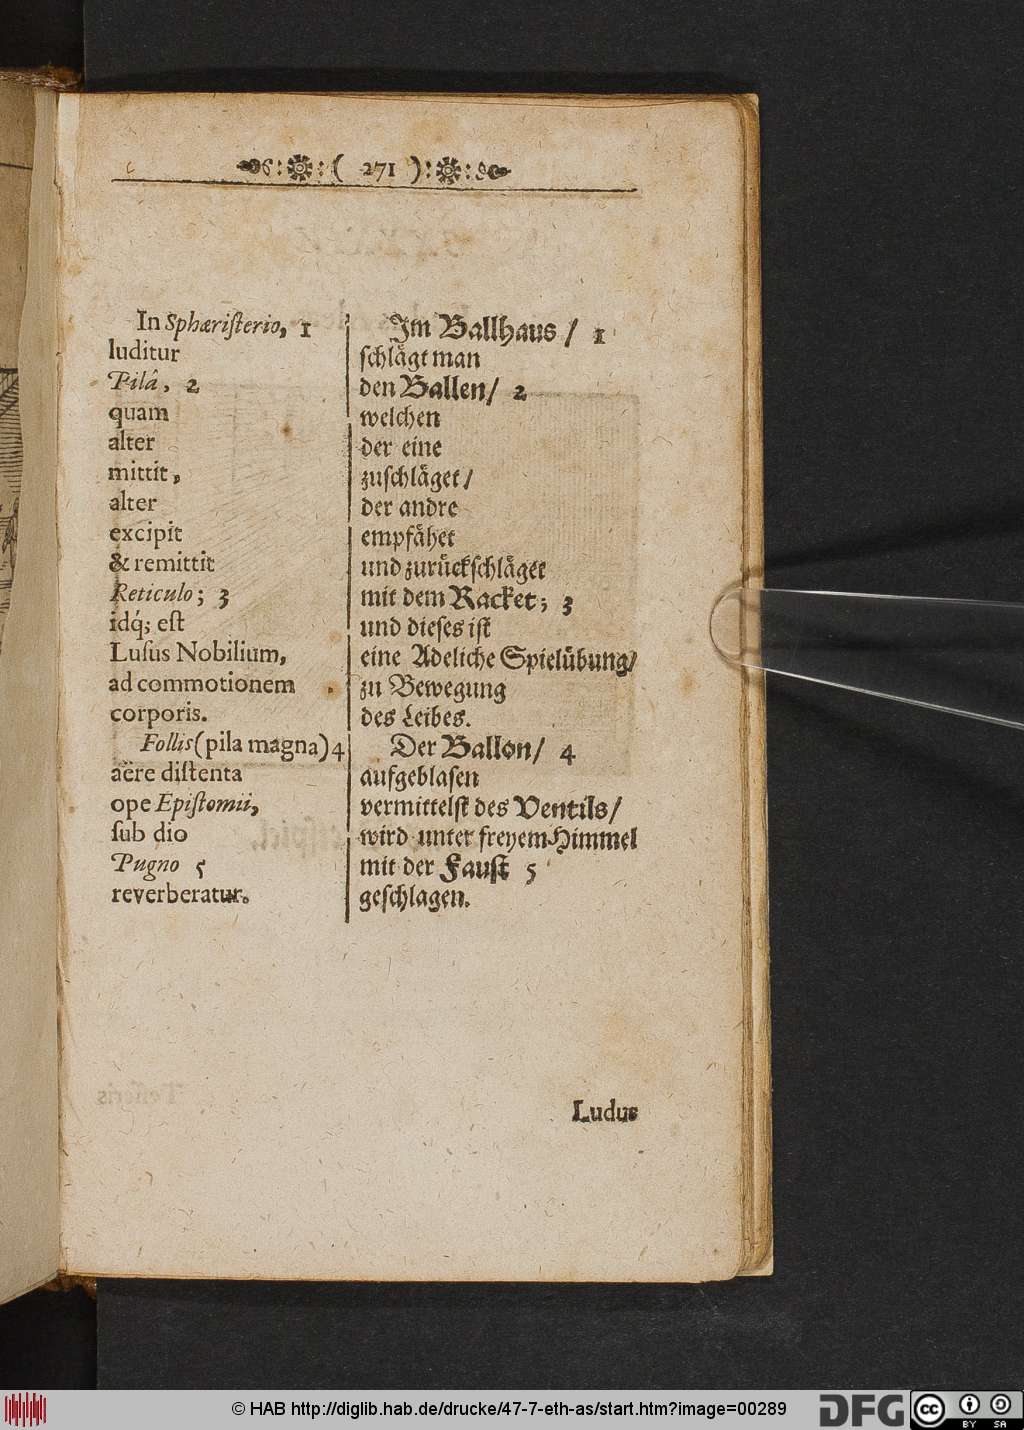 ( 271 )
In Sphæriſterio, 1
luditur
Pilâ, 2
quam
alter
mittit,
alter
excipit
& remittit
Reticulo; 3
idq́; eſt
Luſus Nobilium,
ad commotionem
corporis.
Follis (pila magna) 4
aëre diſtenta
ope Epiſtomii,
ſub dio
Pugno 5
reverberatur.
Im Ballhaus / 1
ſchlägt man
den Ballen / 2
welchen
der eine
zuſchläget /
der andre
empfähet
und zurückſchläget
mit dem Racket; 3
und dieſes iſt
eine Adeliche Spielübung /
zu Bewegung
des Leibes.
Der Ballon / 4
aufgeblaſen
vermittelſt des Ventils /
wird unter freyem Himmel
mit der Fauſt 5
geſchlagen.
Ludus
© HAB http://diglib.hab.de/drucke/47-7-eth-as/start.htm?image=00289
DFG
cc
BY SA